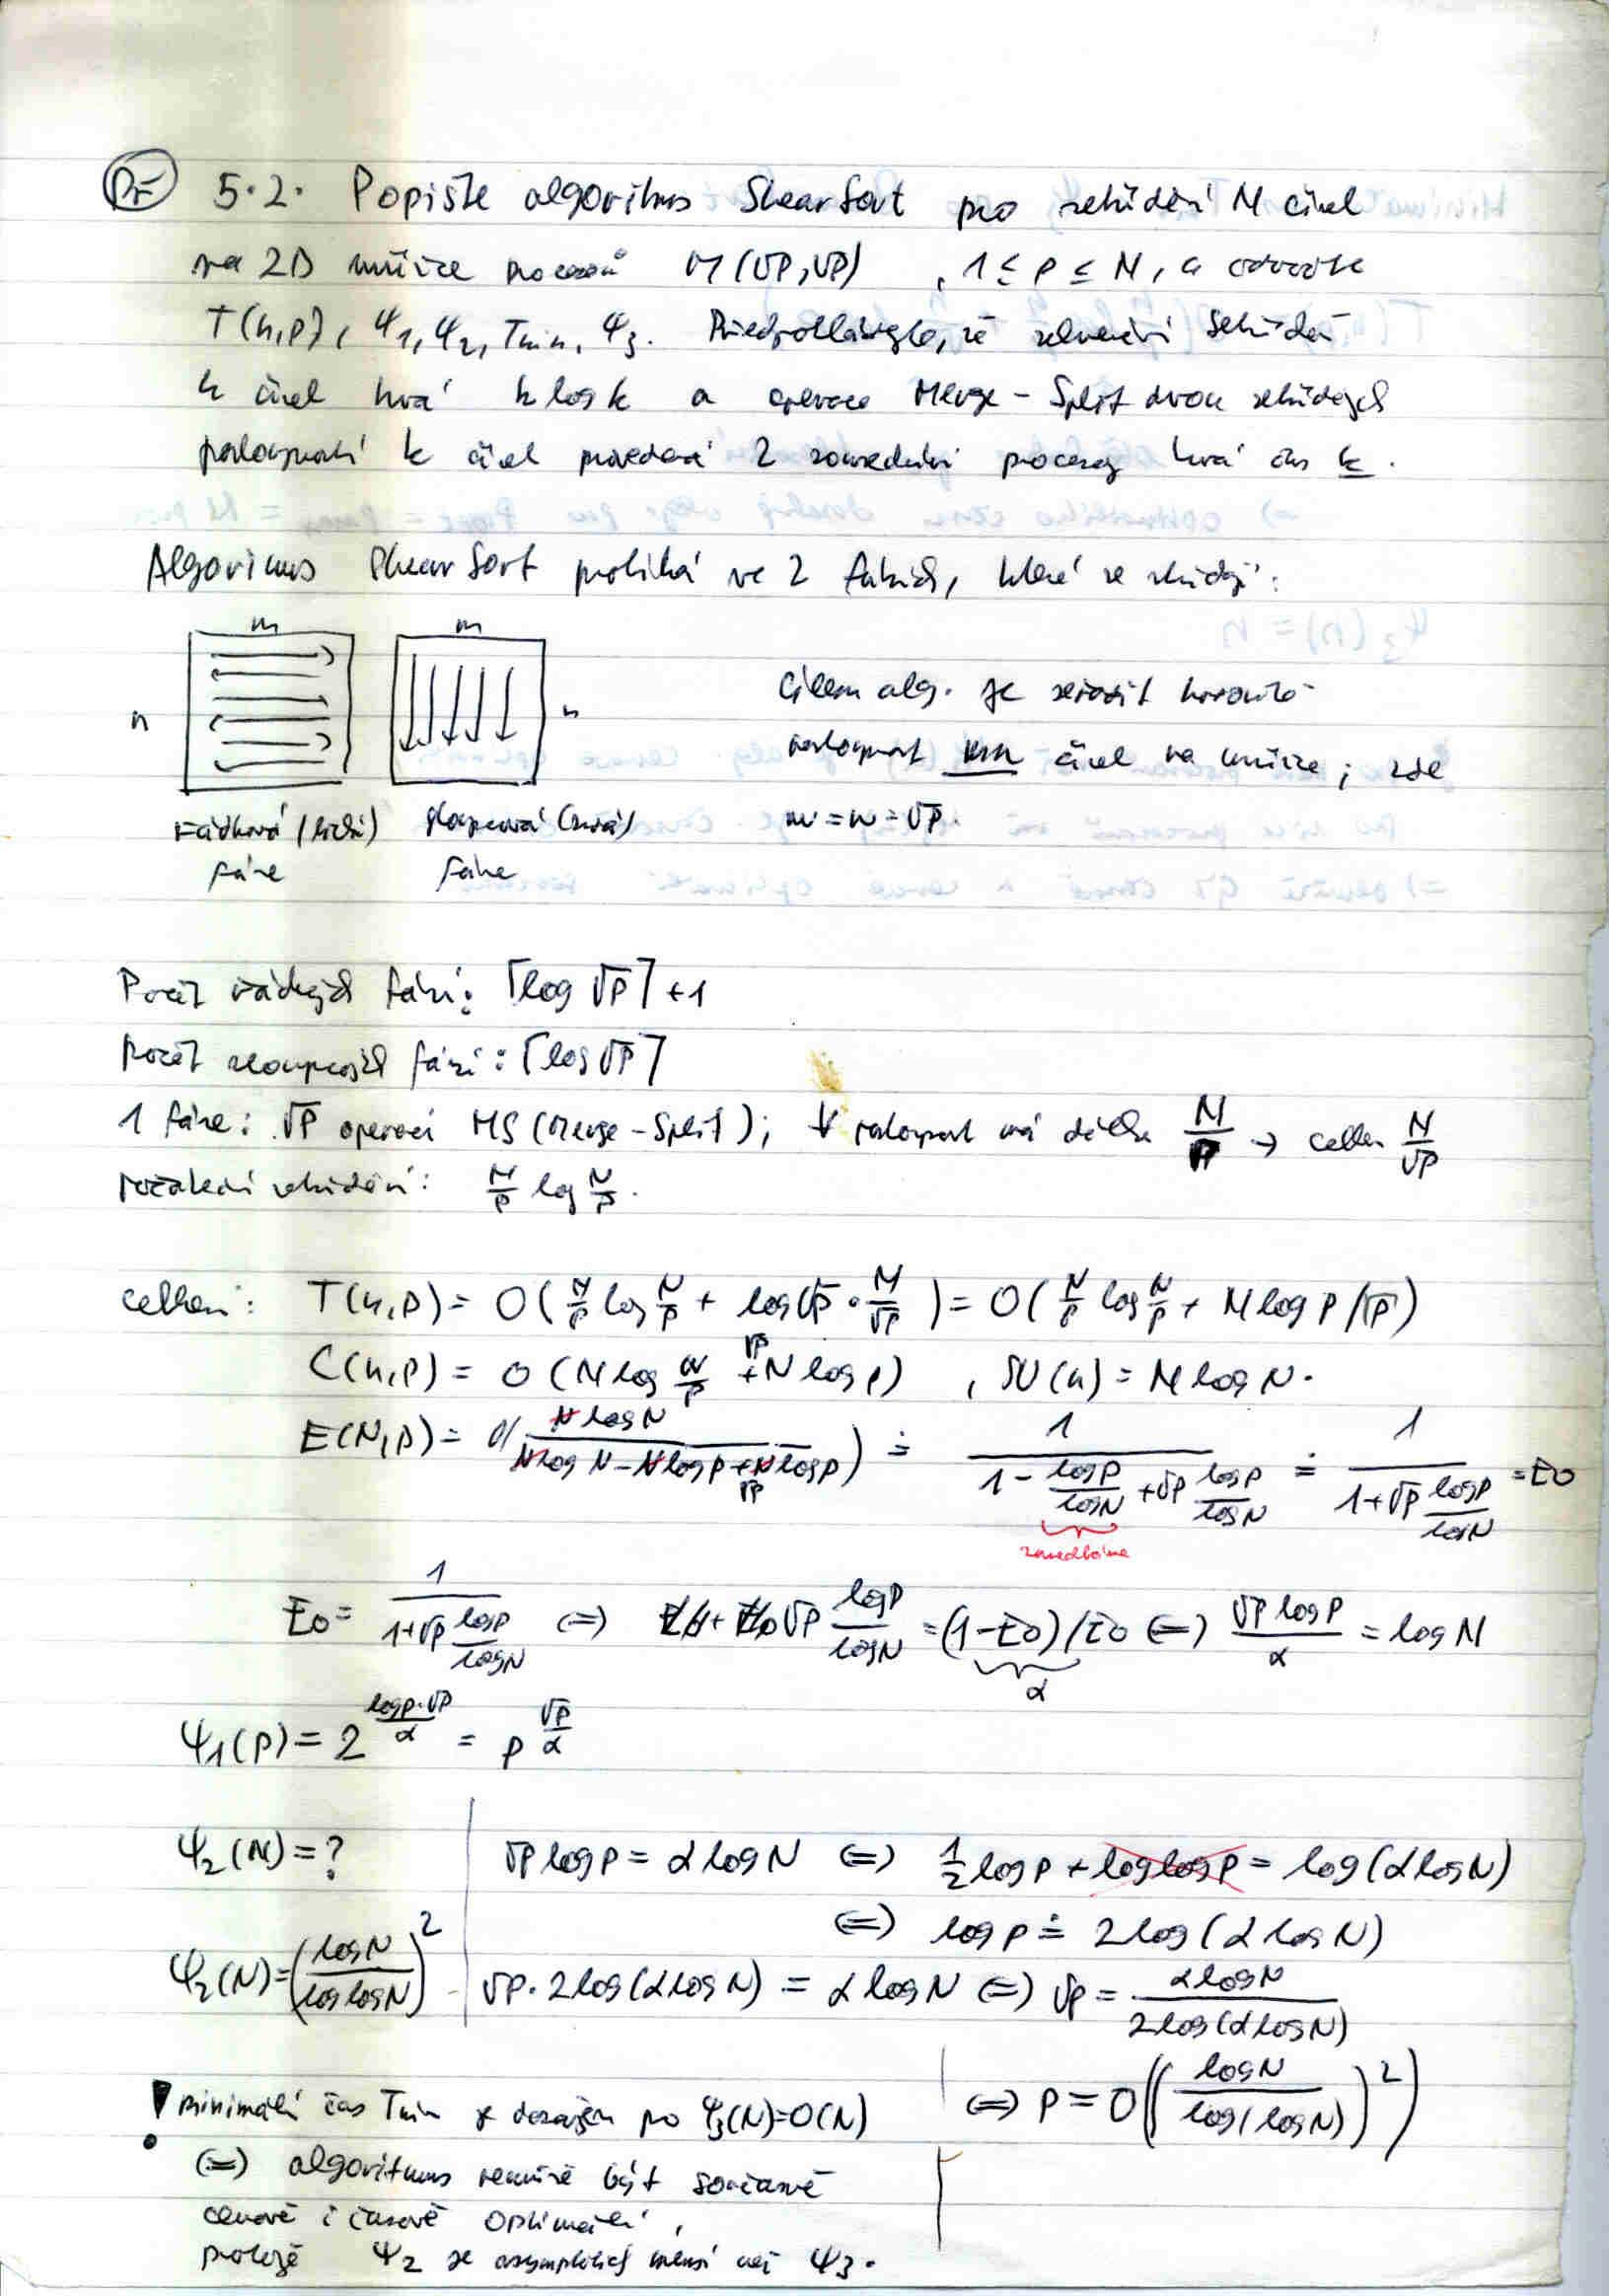 Př 5.2. Popište algoritmus ShearSort pro setřídění N čísel
na 2D mřížce procesorů M(√P,√P), 1 ≤ p ≤ N, a odvoďte
T(n,p), ψ1, ψ2, Tmin, ψ3. Předpokládejte, že sekvenční setřídění
k čísel trvá k log k a operace Merge-Split dvou setříděných
posloupností k čísel provedená 2 sousedními procesory trvá čas k.
Algoritmus ShearSort probíhá ve 2 fázích, které se střídají:
m m
n n
Cílem alg. je seřadit
posloupnost mn čísel na mřížce; zde
m = n = √P.
řádková (lichá) sloupcová (sudá)
fáze fáze
Počet řádkových fází: ⌈log √P⌉ + 1
Počet sloupcových fází: ⌈log √P⌉
1 fáze: √P operací MS (Merge-Split); posloupnost má délku N/P → celkem N/√P
počáteční setřídění: N/P log N/P.
celkem: T(n,p) = O(N/P log N/P + log √P · N/√P) = O(N/P log N/P + N log P/√P)
C(n,p) = O(N log N/P + √P N log p), SU(n) = N log N.
E(N,p) = O(N log N / (N log N - N log P + √P N log P)) ≐ 1/(1 - log P/log N + √P log P/log N) ≐ 1/(1+√P log P/log N) = E0
zanedbáme
E0 = 1/(1+√P log P/log N) ⟺ √P log P/log N = (1-E0)/E0 ⟺ √P log P/α = log N
α
ψ1(p) = 2^(log p·√P/α) = p^(√P/α)
ψ2(N) = ? √P log P = α log N ⟺ 1/2 log P + log log P = log(α log N)
⟺ log p ≐ 2 log(α log N)
ψ2(N) = (log N/log log N)^2 √P · 2 log(α log N) = α log N ⟺ √P = α log N/2 log(α log N)
⟺ P = O((log N/log(log N))^2)
! minimální čas Tmin je dosažen pro ψ3(N)=O(N)
(⇒) algoritmus nemůže být současně
cenově i časově optimální,
protože ψ2 je asymptoticky menší než ψ3.